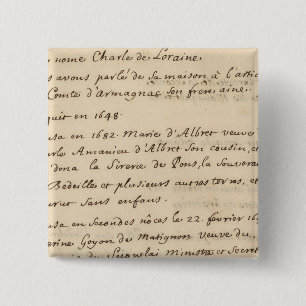 nome Charle de Loraine.
s avons parlé de sa maison à l'artic
Comte d'Armagnac son frere ainé.
quit en 1648
sa en 1682. Marie d'Albret veuve
rle Amanieu d'Albret Son cousin, et
dona la Sirerie de Pons, la Souverai
Bedeille et plusieurs autres terres, et
urut Sans enfans.
sa en Secondes nôces le 22. fevrier 16
erine Goyon de Matignon veuve du
de Seignelai Ministre et Secret